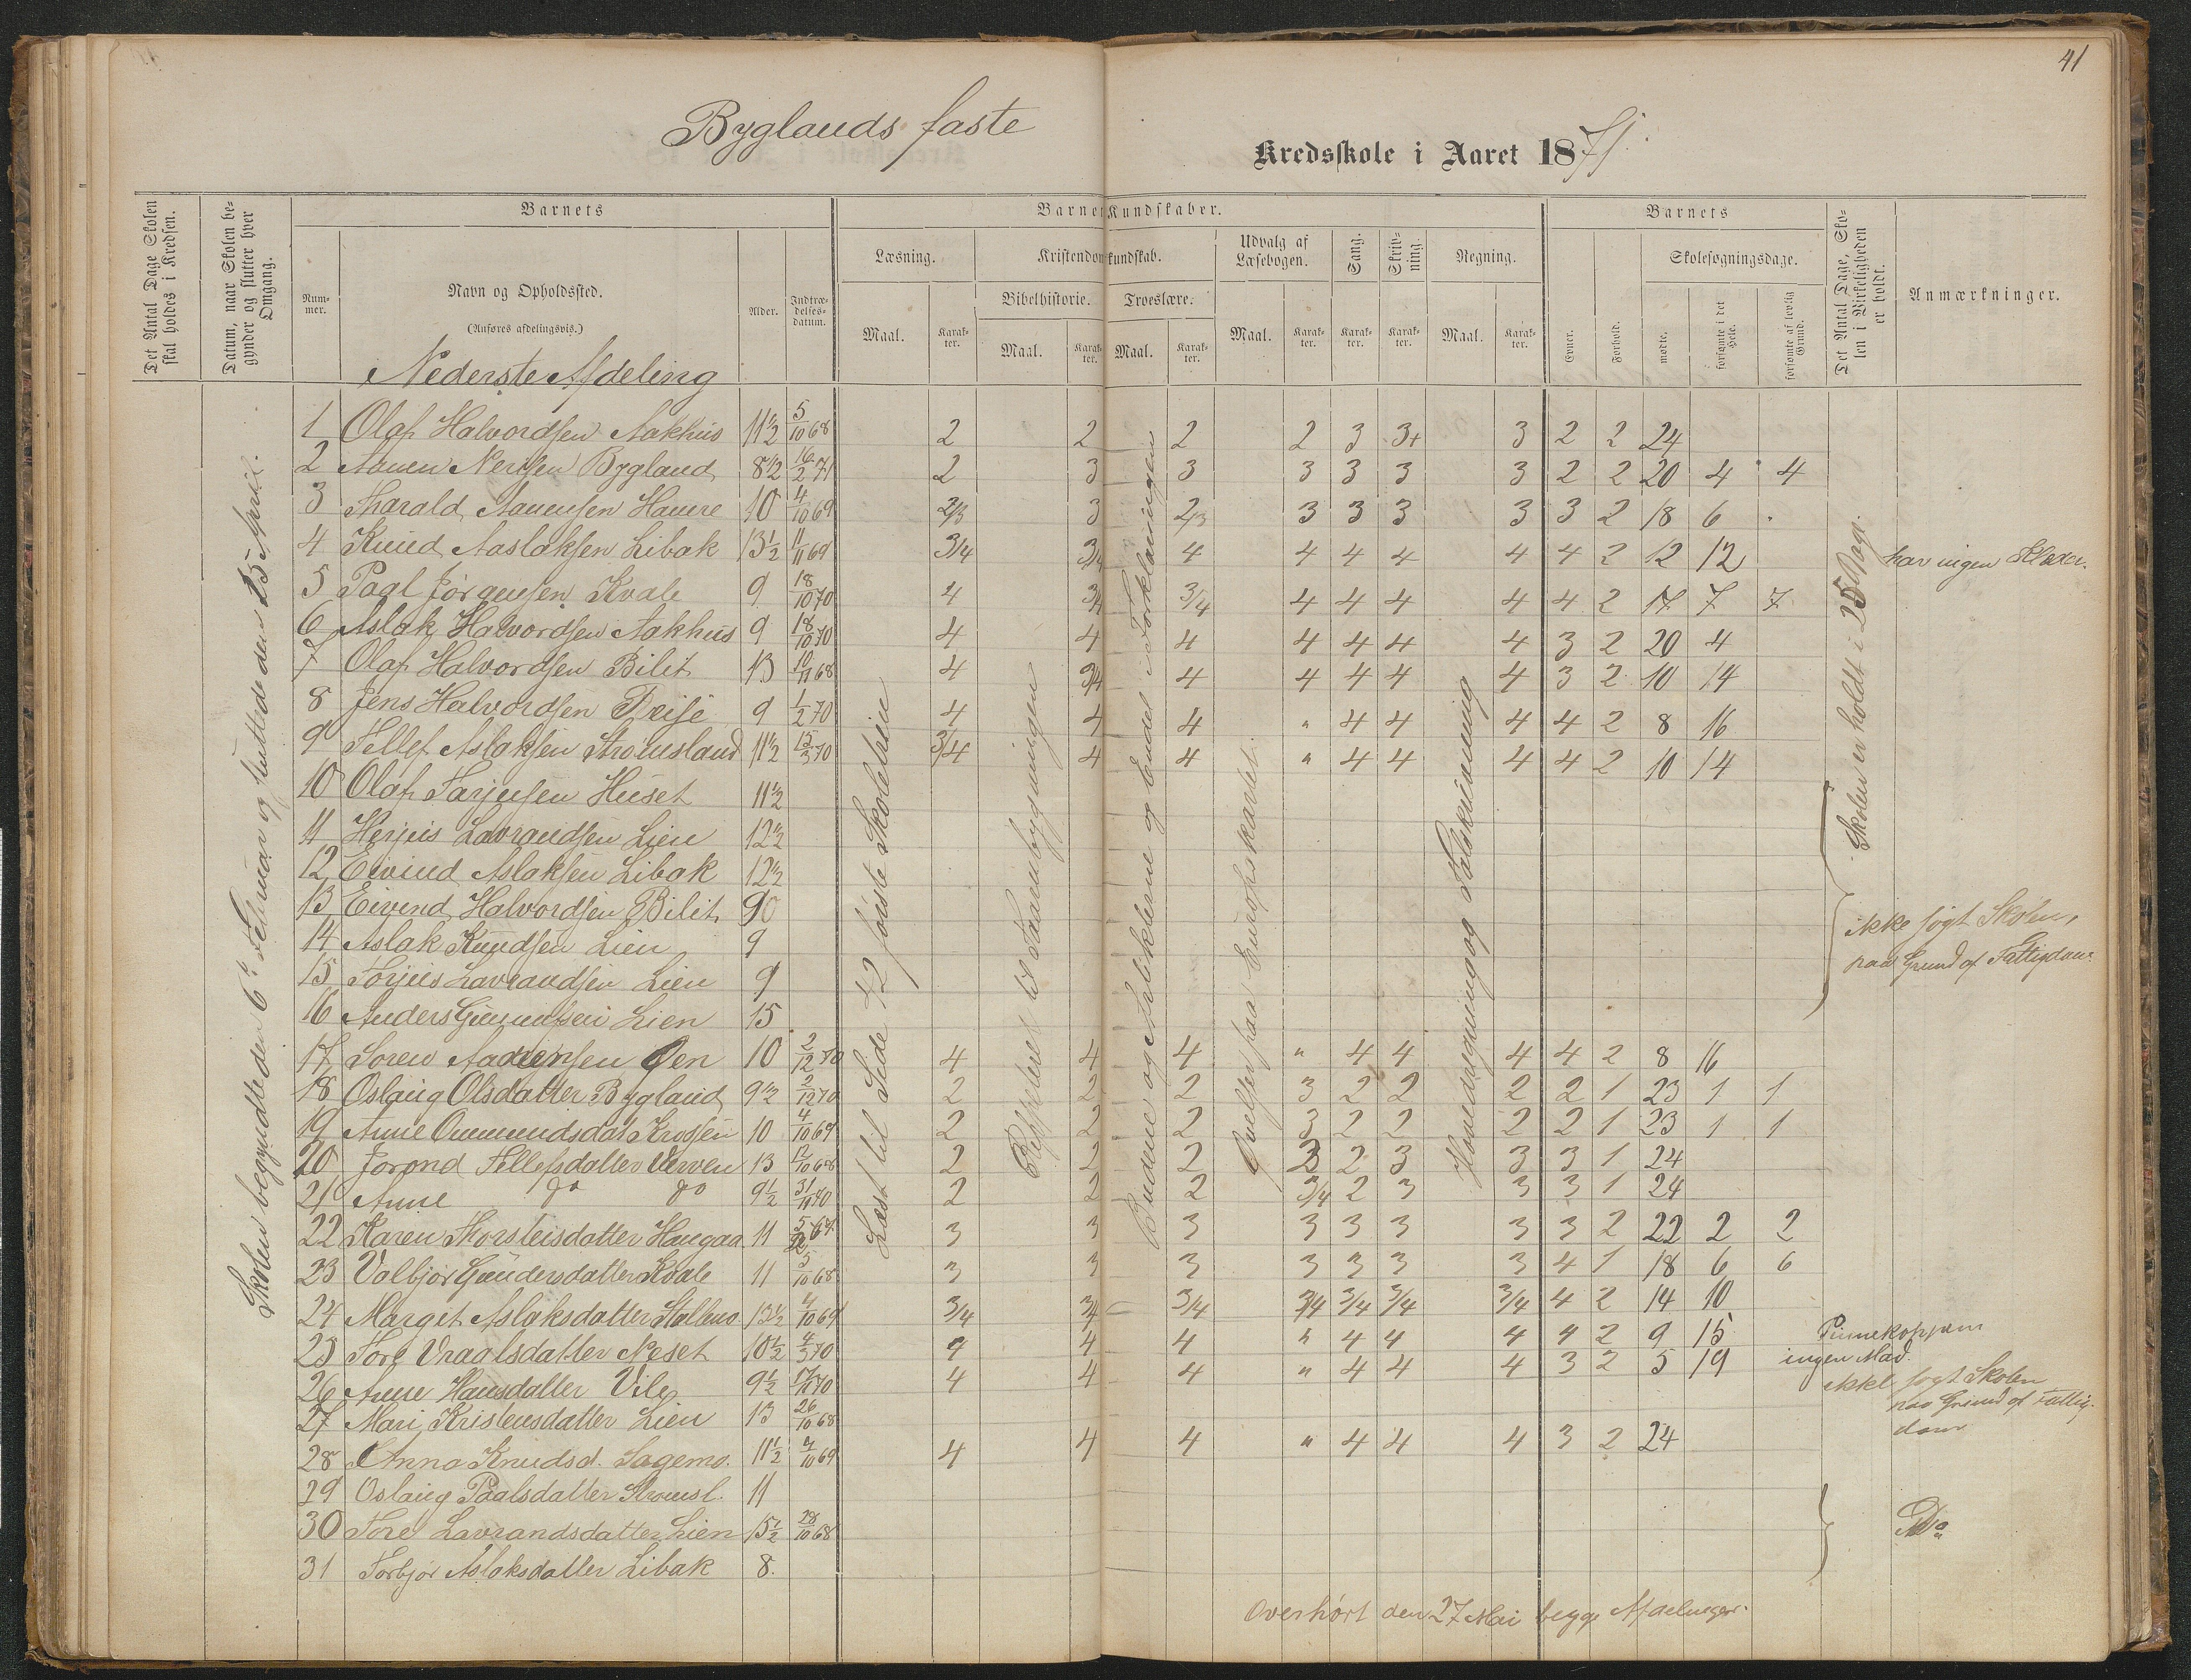 41
Byglands faste
Kredsskole i Aaret 1871.
Det Antal Dage Skolen skal holdes i Kredsen.
Datum, naar Skolen begynder og slutter hver Omgang.
Barnets
Barnets Kundskaber.
Barnets
Det Antal Dage, Skolen i Virkeligheden er holdt.
Anmærkninger.
Nummer.
Navn og Opholdssted.
(Anføres afdelingsvis.)
Alder.
Indtrædelses-datum.
Læsning.
Kristendomskundskab.
Udvalg af Læsebogen.
Sang.
Skrivning.
Regning.
Skolesøgningsdage.
Bibelhistorie.
Troeslære.
Maal.
Karakter.
Maal.
Karakter.
Maal.
Karakter.
Maal.
Karakter.
Karakter.
Karakter.
Maal.
Karakter.
Evner.
Forhold.
mødte.
forsømte i det Hele.
forsømte af lovlig Grund.
Nederste Afdeling
Skolen begyndte den 6te Februar og sluttede den 25 April.
Læst til Side 42 første Skoletrin
Repeteret til Taarnbygningen
Budene og Artiklerne og Endel i Forklaringen
Øvelser paa Europakartet.
Hovedregning og Talskrivning
Skolen er holdt i 25 Dage.
1 Olaf Halvordsen Aakhus 11½ 5/10 68 2 2 2 2 3 3+ 3 2 2 24
2 Aanen Nerisen Bygland 8½ 16/2 71 2 3 3 3 3 3 3 2 2 20 4 4
3 Tharald Aanensen Hauere 10 4/10 69 2/3 3 2/3 3 3 3 3 3 2 18 6
4 Knud Aaslaksen Libak 13½ 11/11 69 3/4 3/4 4 4 4 4 4 4 2 12 12 har ingen Klæder.
5 Paal Jørgensen Kvale 9 18/10 70 4 3/4 3/4 4 4 4 4 4 2 17 7 7
6 Aslak Halvordsen Aakhus 9 18/10 70 4 4 4 4 4 4 4 3 2 20 4
7 Olaf Halvordsen Bilit 13 10/11 68 4 3/4 4 4 4 4 4 3 2 10 14
8 Jens Halvordsen Freise 9 1/2 70 4 4 4 " 4 4 4 4 2 8 16
9 Tellef Aslaksen Stromsland 11½ 15/3 70 3/4 4 4 " 4 4 4 4 2 10 14
10 Olaf Tarjeisen Huset 11½
11 Herjuis Lavrandsen Lien 12½
12 Eivind Aslaksen Libak 12½
13 Eivend Halvordsen Bilit 90
14 Aslak Knudsen Lien 9
ikke søgt Skolen,
paa Grund af Fattigdom.
15 Torjus Lavrandsen Lien 9
16 Anders Gunnufsen Lien 15
17 Soren Aadnensen Oen 10 2/12 70 4 4 4 " 4 4 4 4 2 8 16
18 Oslaug Olsdatter Bygland 9½ 2/12 70 2 2 2 3 2 2 2 2 1 23 1 1
19 Anne Ommundsdat Krogen 10 4/10 69 2 2 2 3 2 2 2 2 1 23 1 1
20 Jorond Tellefsdatter Verven 13 12/10 68 2 2 2 3 2 3 3 3 1 24
21 Anne do do 9½ 31/11 70 2 2 2 3/4 2 3 3 3 1 24
22 Karen Thorsteisdatter Haugaa 11 3 3 3 3 3 3 3 3 2 22 2 2
23 Valbjør Gundersdatter Kvale 11 5/10 68 3 3 3 3 3 3 3 4 1 18 6 6
24 Margit Aslaksdatter Stallemo 13½ 4/10 69 3/4 3/4 3/4 3/4 3/4 3/4 3/4 4 2 14 10
25 Tore Vraalsdatter Neset 10½ 4/3 70 4 4 4 " 4 4 4 4 2 9 15
26 Anne Hansdatter Vile 9½ 17/11 70 4 4 4 " 4 4 4 3 2 5 19 ingen Mad.
27 Mari Kristensdatter Lien 13 26/10 68 ikke søgt Skolen
paa Grund af Fattigdom
28 Anna Knudsd. Sagemo. 11½ 4/10 69 4 4 4 " 4 4 4 3 2 24
29 Oslaug Paalsdatter Stromsl. 11
30 Tore Lavrandsdatter Lien 15½ 28/10 68 Do
31 Torbjør Aslaksdatter Libak 8.
Overhørt den 27 Mai begge Afdelinger.